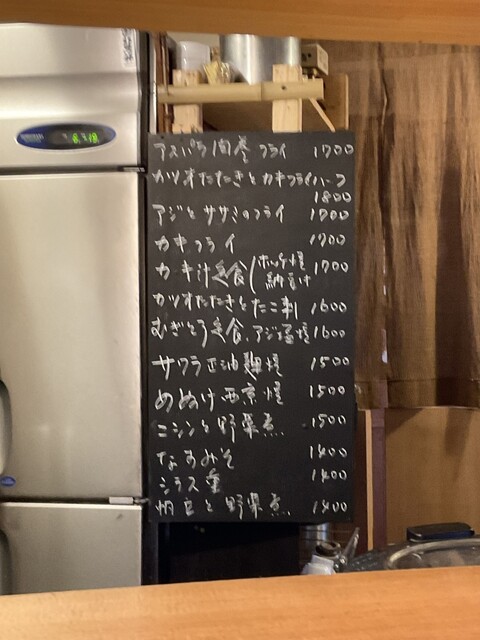 アスパラ肉巻フライ 1700
カツオたたきとカキフライハーフ
1800
アジとササミのフライ 1700
カキフライ 1700
カキ汁定食(ホッケ焼 納豆付 1700
カツオたたきとたこ刺 1600
むぎとろ定食、アジ塩焼 1600
サワラ正油麹焼 1500
めぬけ西京焼 1500
ニシンと野菜煮 1500
なすみそ 1400
シラス重 1400
帆立と野菜煮 1400